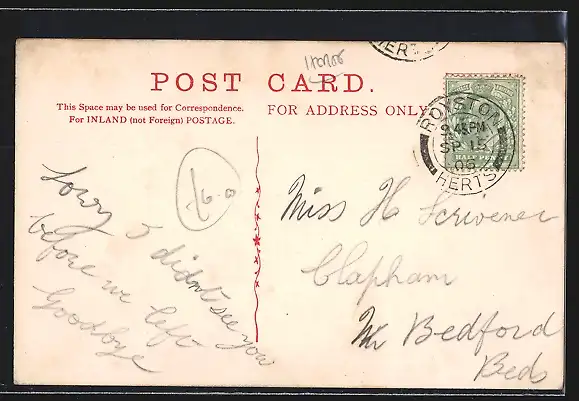 POST CARD.
This Space may be used for Correspondence.
For INLAND (not Foreign) POSTAGE.
FOR ADDRESS ONLY
HERTS
ROYSTON
9.45PM
SP 15
05
HERTS
HALF PE
Sorry I didn't see you
before we left
Goodbye
Miss H Scrivener
Clapham
Nr Bedford
Beds